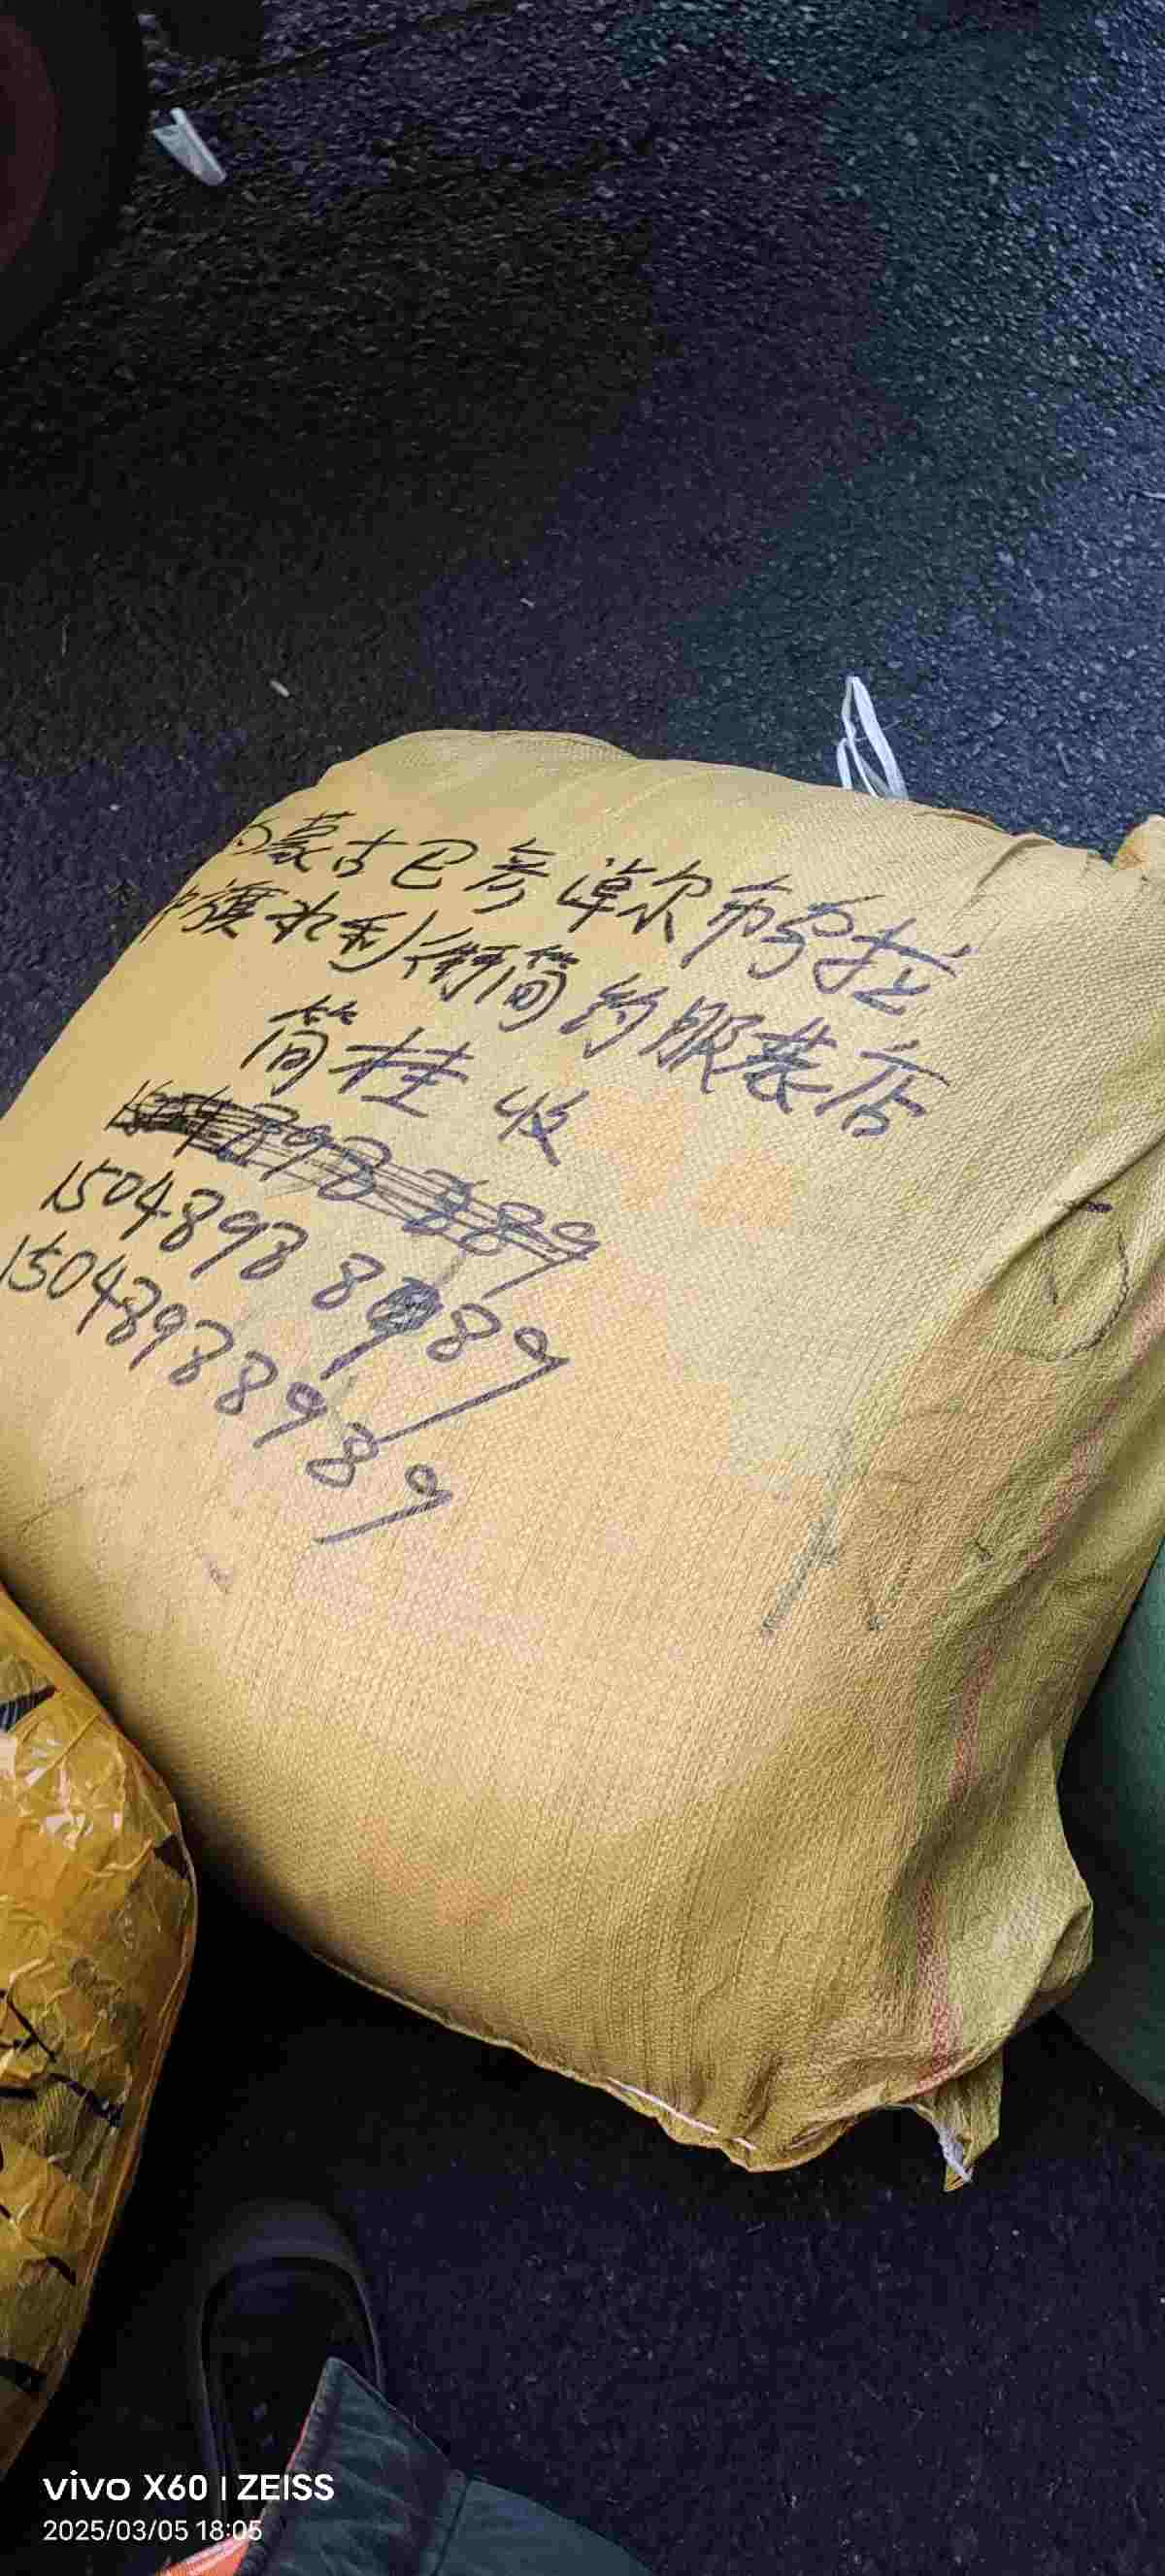 内蒙古巴彦淖尔市乌拉
中旗水利街简约服装店
简桂 收
15048988989
15048988989
vivo X60 | ZEISS
2025/03/05 18:05